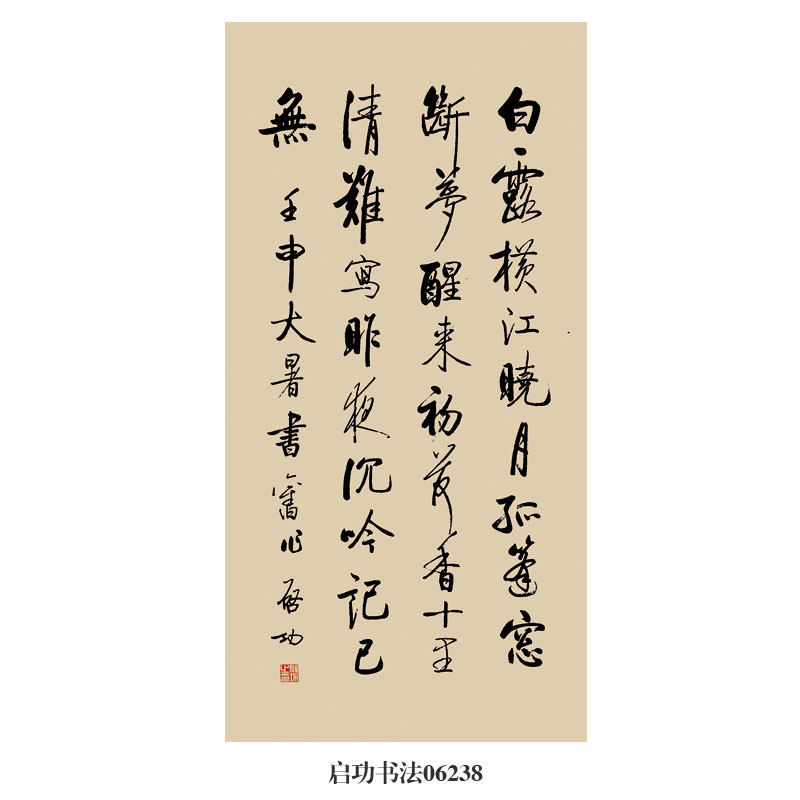 白露横江曉月孤篷窓
斷夢醒来初荷香十里
清難寫昨夜沉吟記已
無 壬申大暑書舊作 啓功
启功书法06238